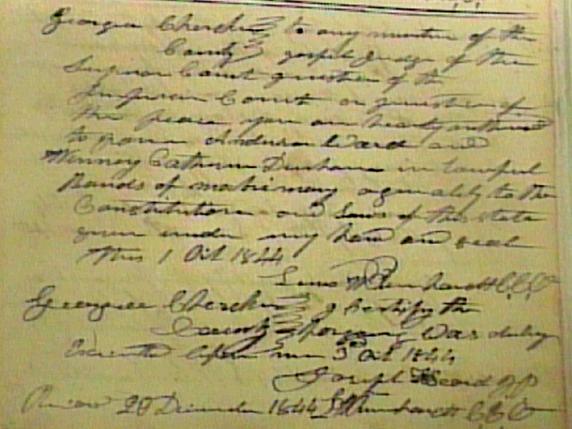 Georgia Cherokee to any minister of the
County gospel Judge of the
Superior Court Justice of the
Inferior Court or Justice of
the peace you are hearby authorised
to Joine Anderson Ward and
Winney Catherine Dunham in lawful
Bands of matrimony agreeably to the
Constitution and Laws of the State
given under my hand and seal
this 1 Oct 1844
CCO
Georgia Cherokee I Certify the
County foregoing was duly
Executed before me 3 Oct 1844
Joseph Beard JP
20 December 1844 CCO